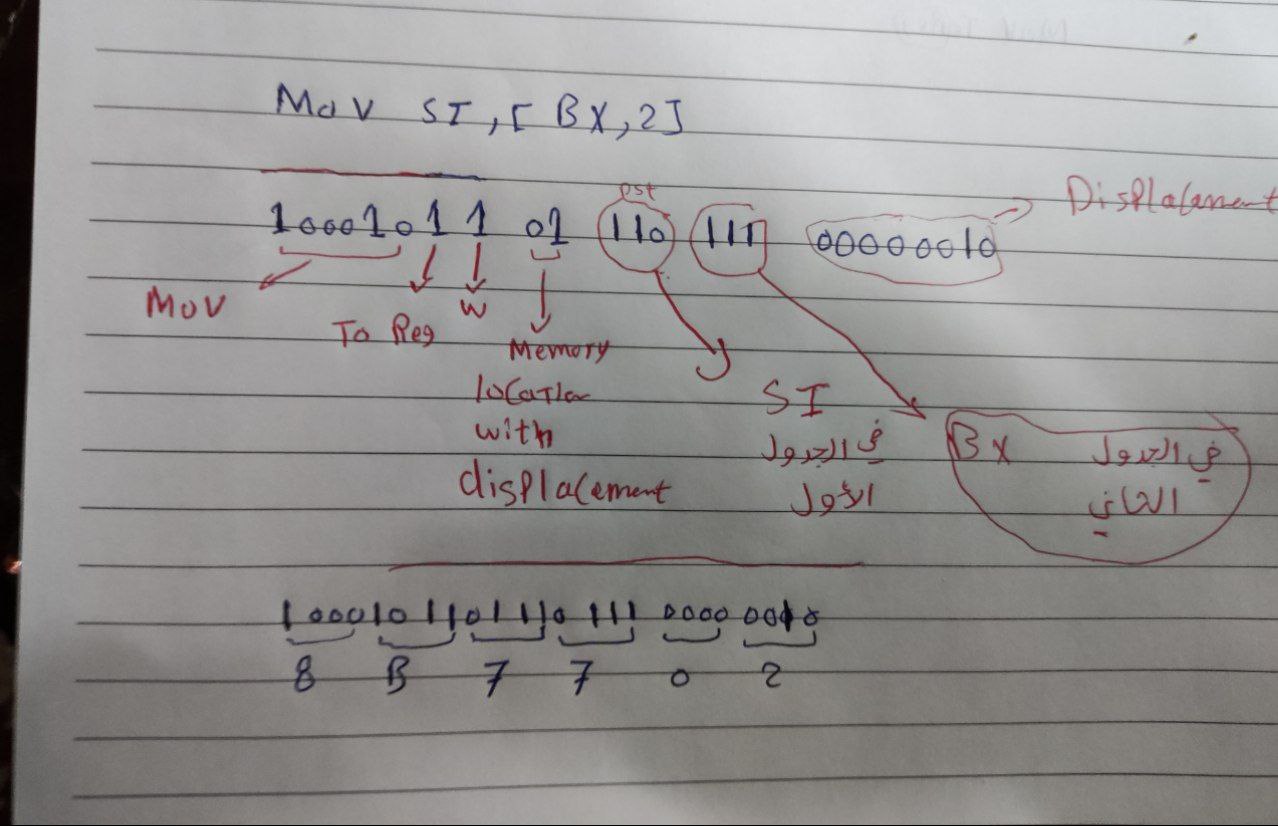 MOV SI, [BX, 2]
Dst
10001011 01 110 111 00000010 Displacement
MOV
To Reg
W
Memory
location
with
displacement
SI
في الجدول
الأول
BX في الجدول
الثاني
1000 1011 0111 0111 0000 0010
8 B 7 7 0 2